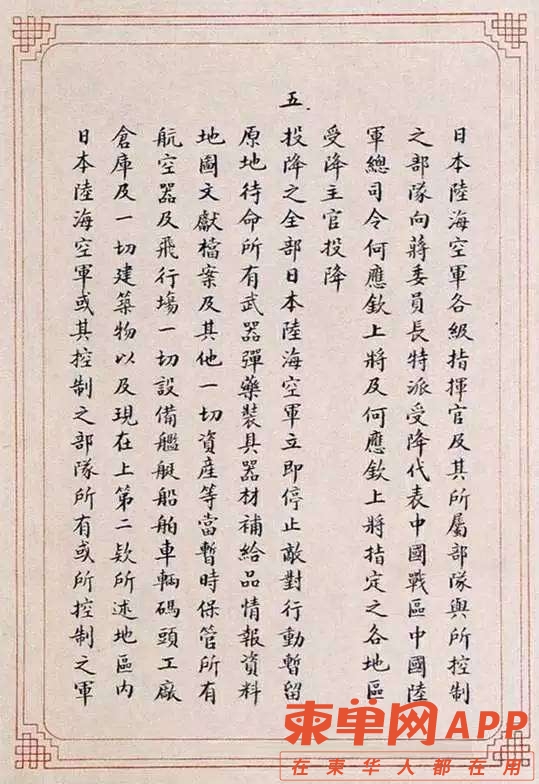 日本陸海空軍各級指揮官及其所屬部隊與所控制
之部隊向蔣委員長特派受降代表中國戰區中國陸
軍總司令何應欽上將及何應欽上將指定之各地區
受降主官投降
五.
投降之全部日本陸海空軍立即停止敵對行動暫留
原地待命所有武器彈藥裝具器材補給品情報資料
地圖文獻檔案及其他一切資產等當暫時保管所有
航空器及飛行場一切設備艦艇船舶車輛碼頭工廠
倉庫及一切建築物以及現在上第二欵所述地區內
日本陸海空軍或其控制之部隊所有或所控制之軍
柬单网APP
在柬华人都在用